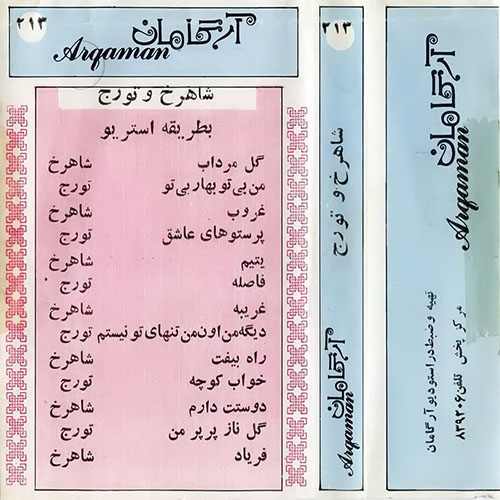 ۲۱۳
آرگامان
Arqaman
شاهرخ و تورج
بطریقه استریو
گل مرداب شاهرخ
من بی تو بهار بی تو تورج
غروب شاهرخ
پرستوهای عاشق تورج
یتیم شاهرخ
فاصله تورج
غریبه شاهرخ
دیگه من اون من تنهای تو نیستم تورج
راه بیفت شاهرخ
خواب کوچه تورج
دوستت دارم شاهرخ
گل ناز پرپر من تورج
فریاد شاهرخ
۲۱۳
شاهرخ و تورج
آرگامان
Arqaman
آرگامان
Arqaman
تهیه و ضبط در استودیو آرگامان
مرکز پخش تلفن ۸۳۹۲۰۶